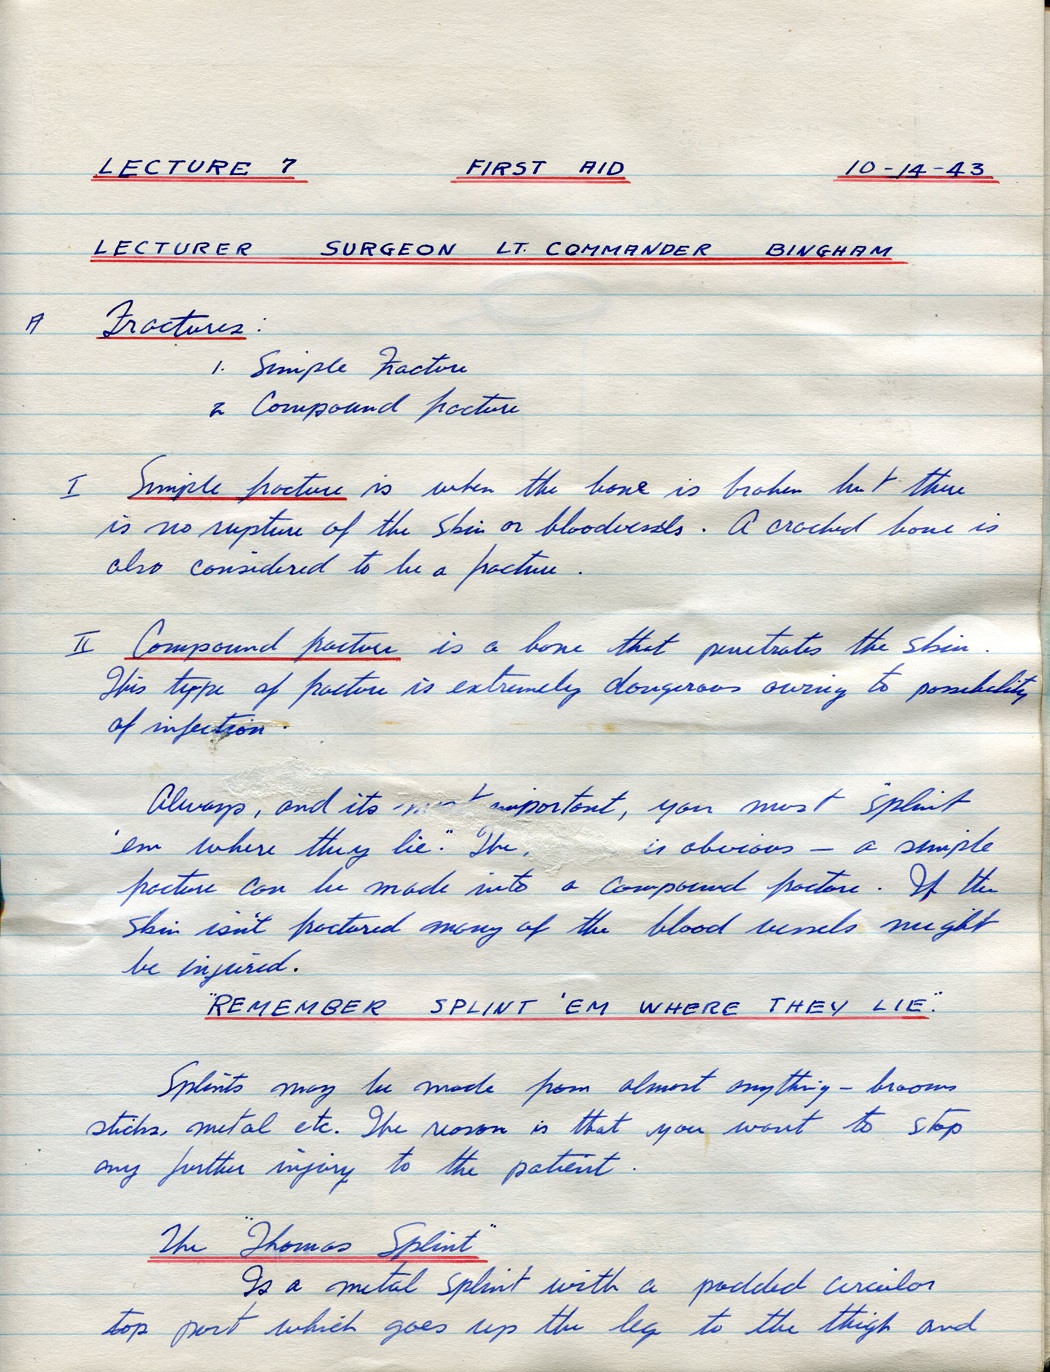 LECTURE 7 FIRST AID 10-14-43
LECTURER SURGEON LT. COMMANDER BINGHAM
A Fractures:
1. Simple Fracture
2 Compound fracture
I Simple fracture is when the bone is broken but there
is no rupture of the skin or bloodvessels. A cracked bone is
also considered to be a fracture.
II Compound fracture is a bone that penetrates the skin.
This type of fracture is extremely dangerous owing to possibility
of infection.
Always, and its most important, you must "splint
'em where they lie." The is obvious — a simple
fracture can be made into a compound fracture. If the
skin isn't fractured many of the blood vessels might
be injured.
"REMEMBER SPLINT 'EM WHERE THEY LIE."
Splints may be made from almost anything — brooms
sticks, metal etc. The reason is that you want to stop
any further injury to the patient.
The "Thomas Splint"
Is a metal splint with a padded circular
top part which goes up the leg to the thigh and